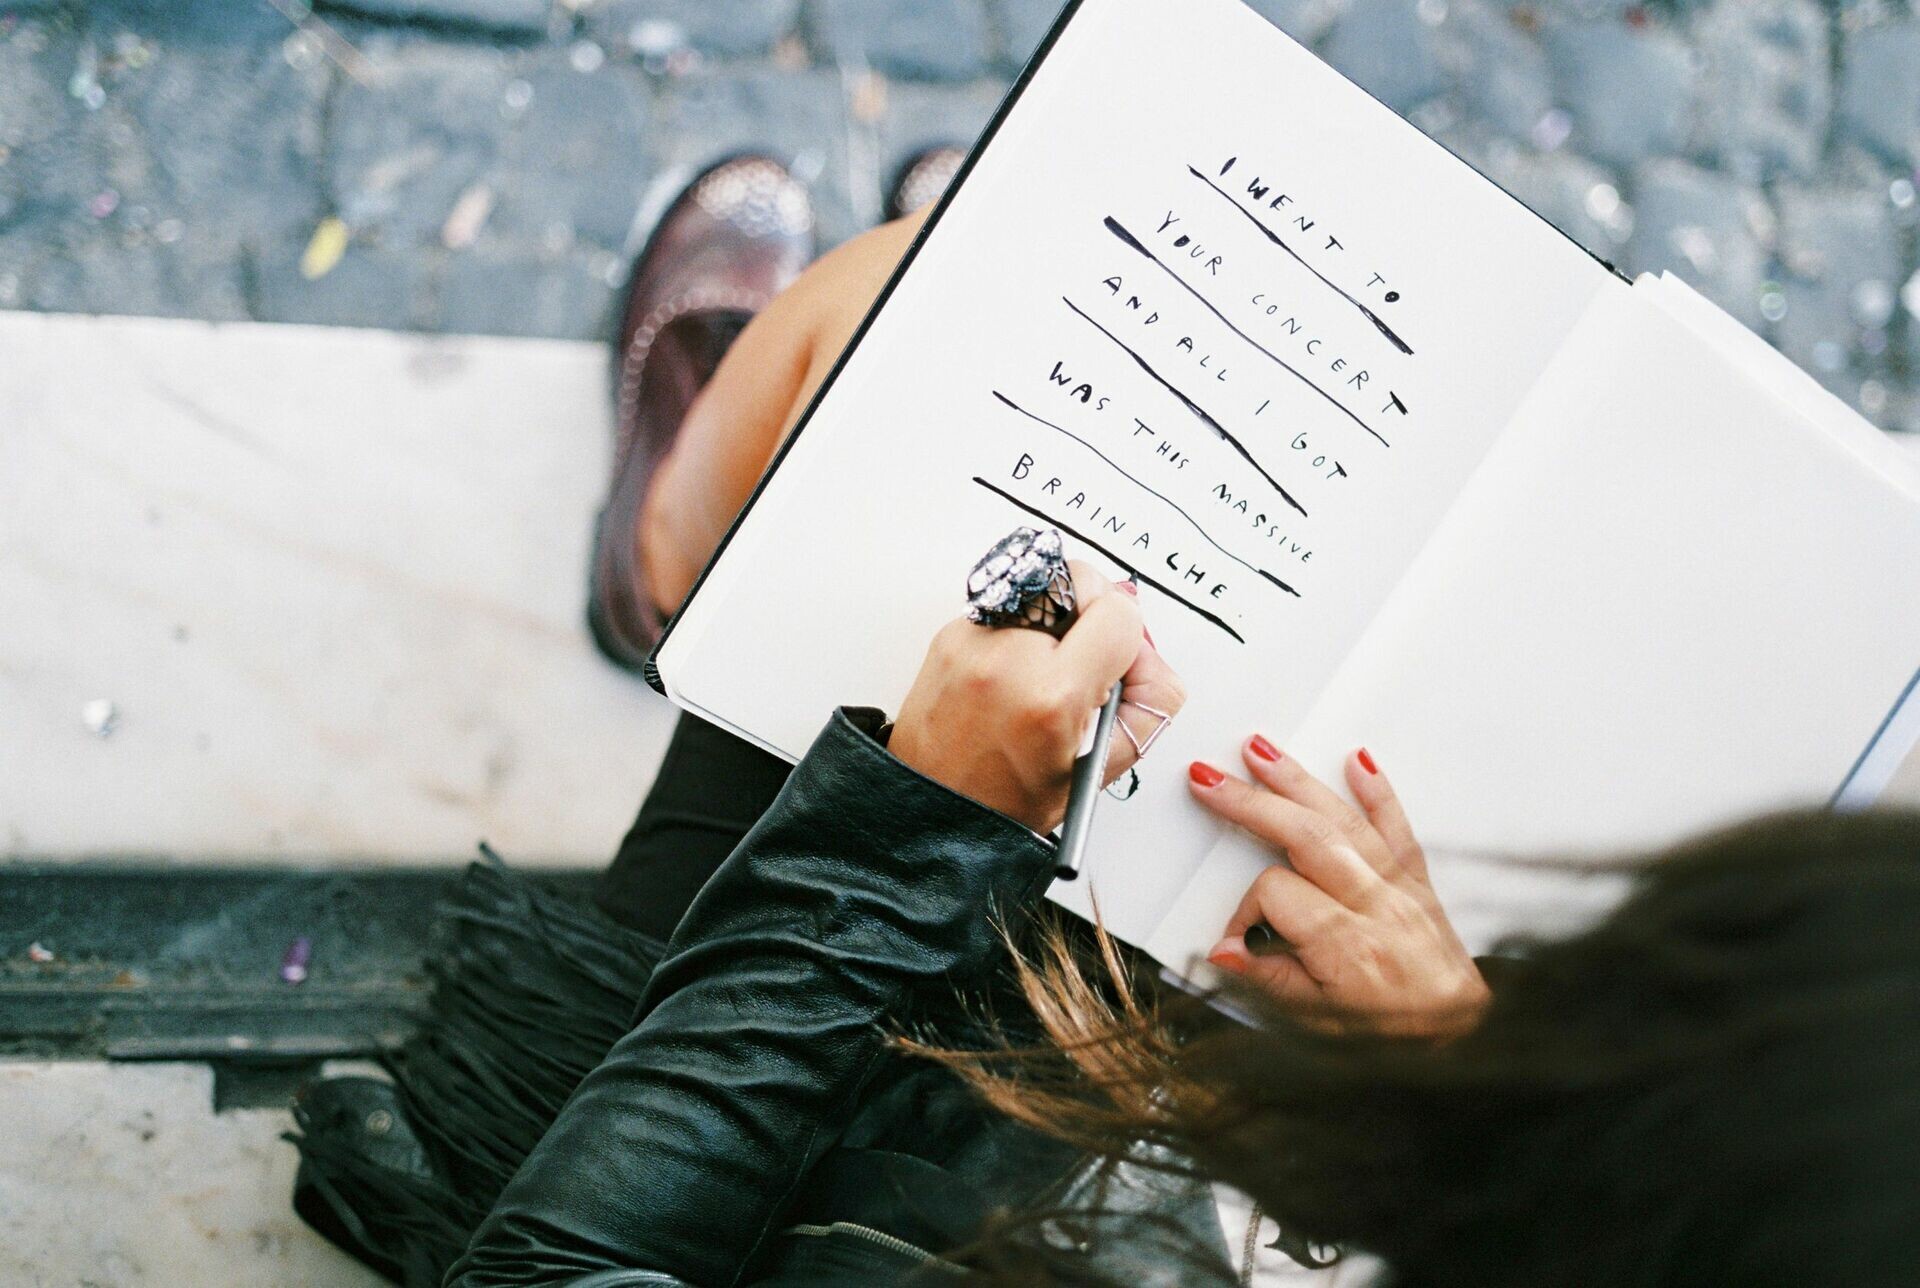 I WENT TO
YOUR CONCERT
AND ALL I GOT
WAS THIS MASSIVE
BRAINACHE.